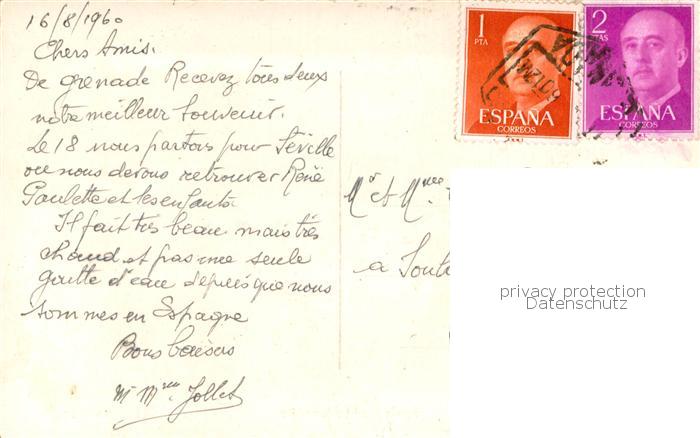 16/8/1960
Chers Amis.
De grenade Recevez tous deux
notre meilleur souvenir.
Le 18 nous partons pour Séville
ou nous devons retrouver René
Paulette et les enfants.
Il fait très beau mais très
chaud et pas une seule
goutte d'eau depuis que nous
sommes en Espagne
Bons baisers
Mr Mme Jollet
1
PTA
ESPAÑA
CORREOS
2
PTAS
ESPAÑA
CORREOS
Mr et Mme
a
privacy protection
Datenschutz.